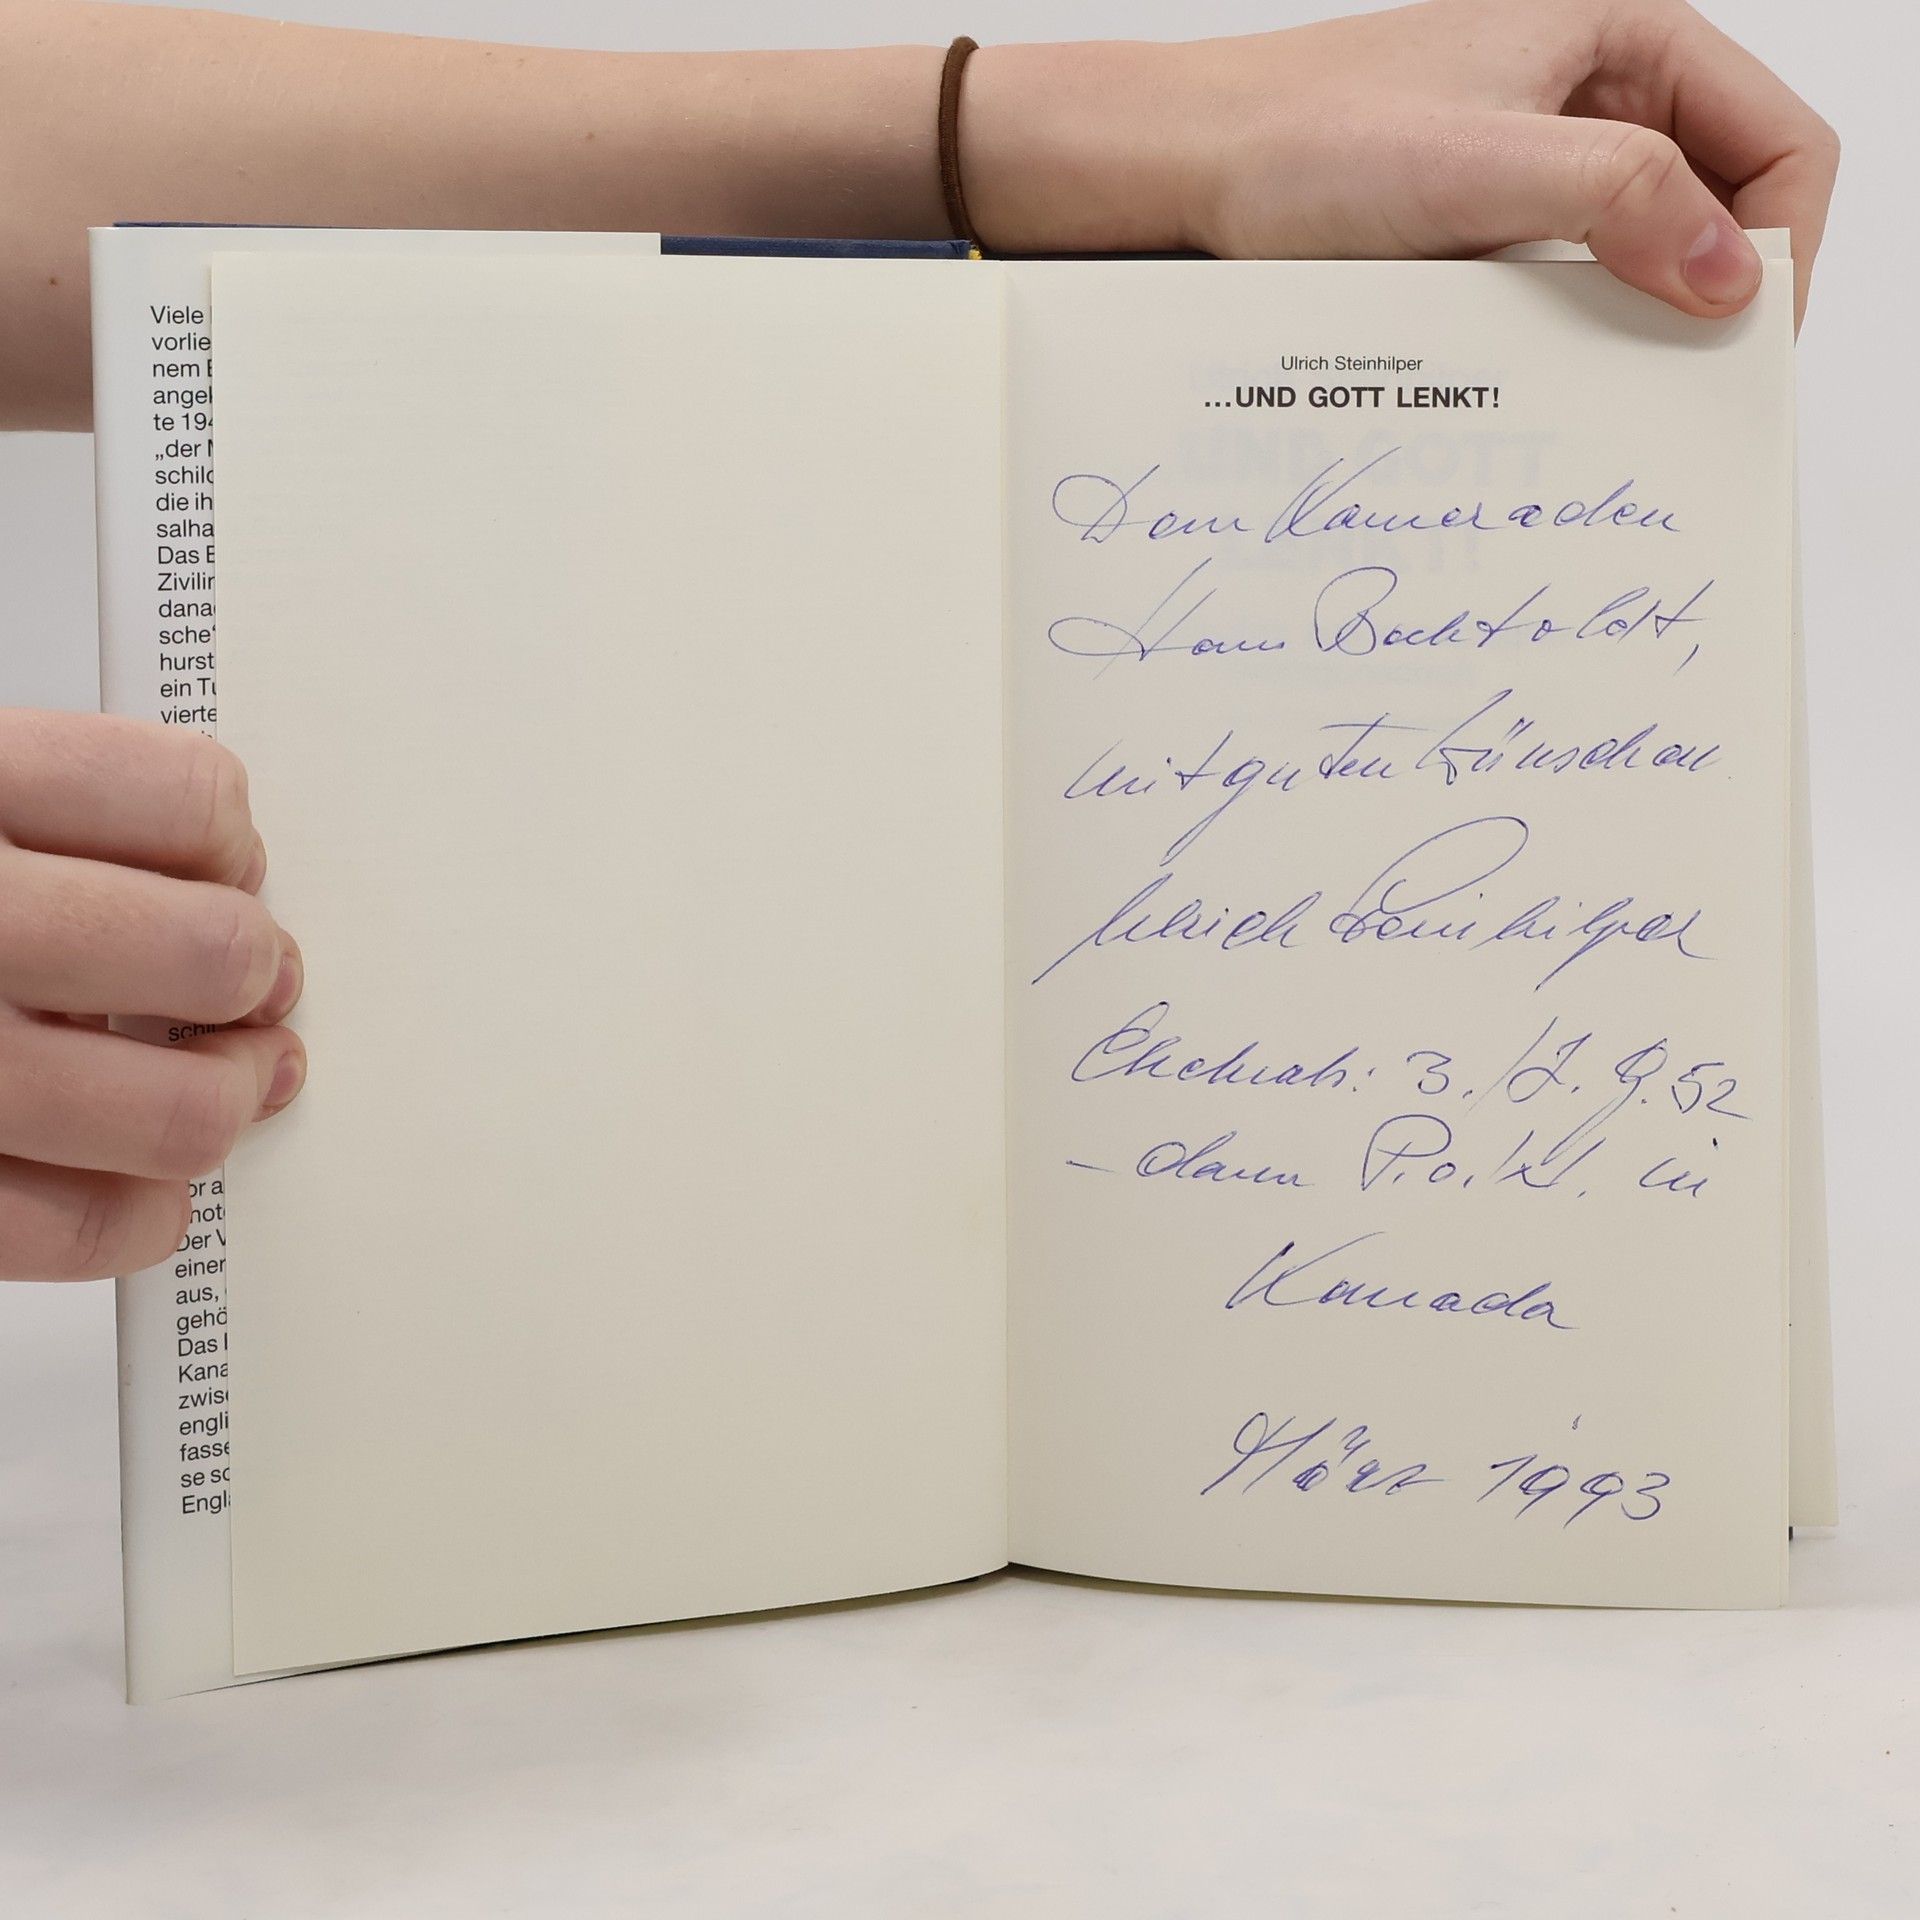 Viele
vorlie
nem
angek
te 194
„der
schild
die ih
salha
Das
Zivilin
dana
sche“
hurst
ein Tu
vierte
schil
or a
not
Der V
einer
aus,
gehö
Das
Kana
zwisc
engli
fasse
se sc
Engl
Ulrich Steinhilper
...UND GOTT LENKT!
Dem Kameraden
Hans Bechtoldt,
mit guten Wünschen
Ulrich Steinhilper
Ehemals: 3./J.G.52
– dann P.o.W. in
Kanada
März 1993